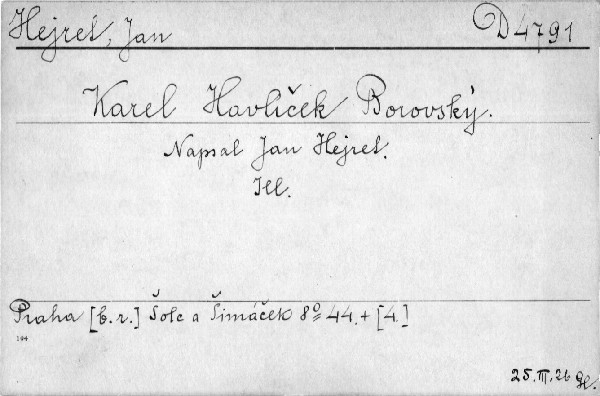 Hejret, Jan D 4791
Karel Havlíček Borovský.
Napsal Jan Hejret.
Ill.
Praha [b.r.] Šolc a Šimáček 8° 44.+[4.]
194
25.III.26